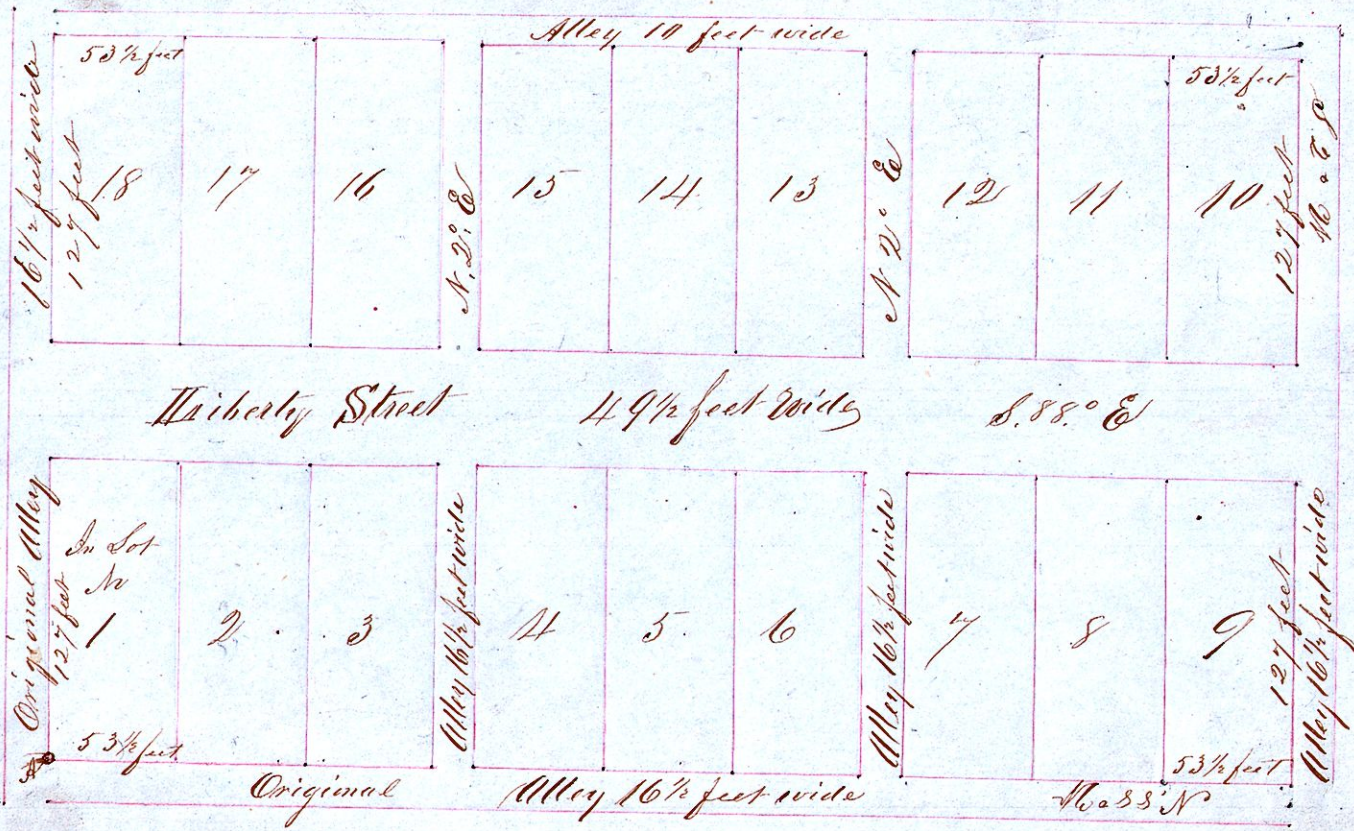 Alley 10 feet wide
53½ feet
53½ feet
16½ feet wide
127 feet
18
17
16
N. 2° E
15
14
13
N 2° E
12
11
10
127 feet
Liberty Street 49½ feet Wide S. 88° E
Original Alley
127 feet
In Lot
No
1
2
3
Alley 16½ feet wide
4
5
6
Alley 16½ feet wide
7
8
9
127 feet
Alley 16½ feet wide
53½ feet
53½ feet
Original Alley 16½ feet wide